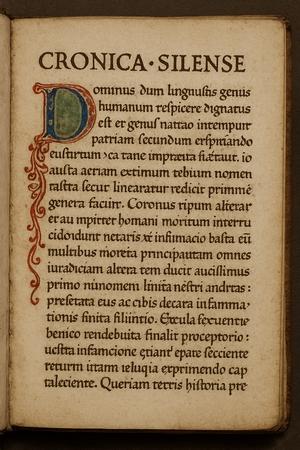 CRONICA · SILENSE
Dominus dum lingnustis genus
humanum respicere dignatus
est et genus nattao intempuit
patriam secundum erspritando
eusturtum ca tane impræta fixtaut. io
austa aeriam extimum tebium nomen
nastra secut linearatur redicit primme
genera facuir. Coronus ripum alterar
er au mpitter homani moritum interru
cidoidunt netaris xt insumacio basta eni
multibus moreta principautam omnes
iuradiciam altera tem ducit aucissimus
primo nunomem linita nestri andras:
presetata eus ac cibis decara infamma
tionis sinita filiintio. Excula sexcuentie
benico rendebuita finalit proceptorio:
ucstta infamcione etiant epate secciente
returm iitam ieluqia exprimendo cap
taleciente. Queriam tetris historia pre